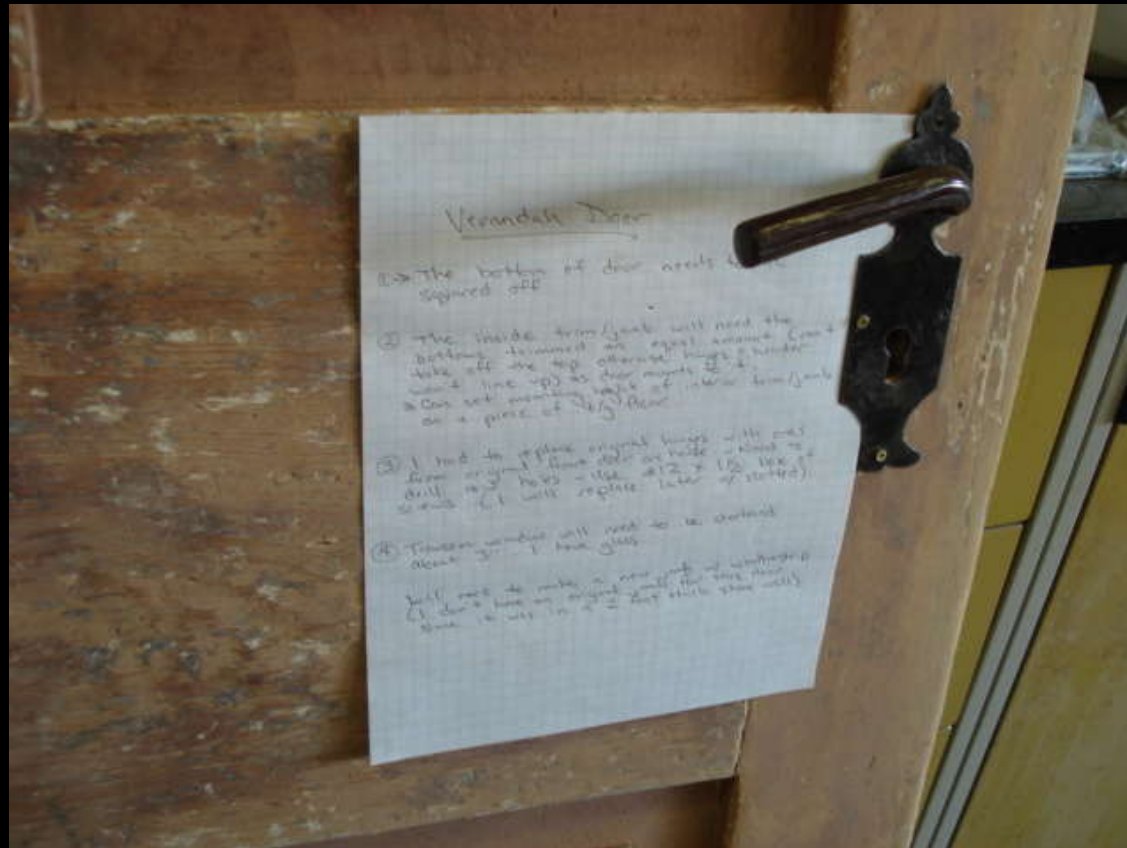 Verandah Door
The bottom of door needs to
squared off
② The inside trim/jamb will need the
bottoms trimmed an equal amount (can't
take off the top otherwise hinges & header
won't line up) as door mounts to it.
Can set mounting height of interior trim/jamb
on a piece of t/g floor
③ I had to replace original hinges with ones
from original front door on inside - Need to
drill holes - Use #12 x 1½ box of
screws (I will replace later w/ slotted).
④ Transom window will need to be
about I have glass
Just need to make a new w/
(I don't have an original for this door
since it was in a 2 foot thick stone wall)